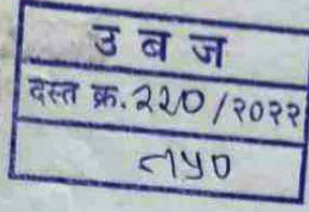 उ ब ज
दस्त क्र. २२०/२०२२